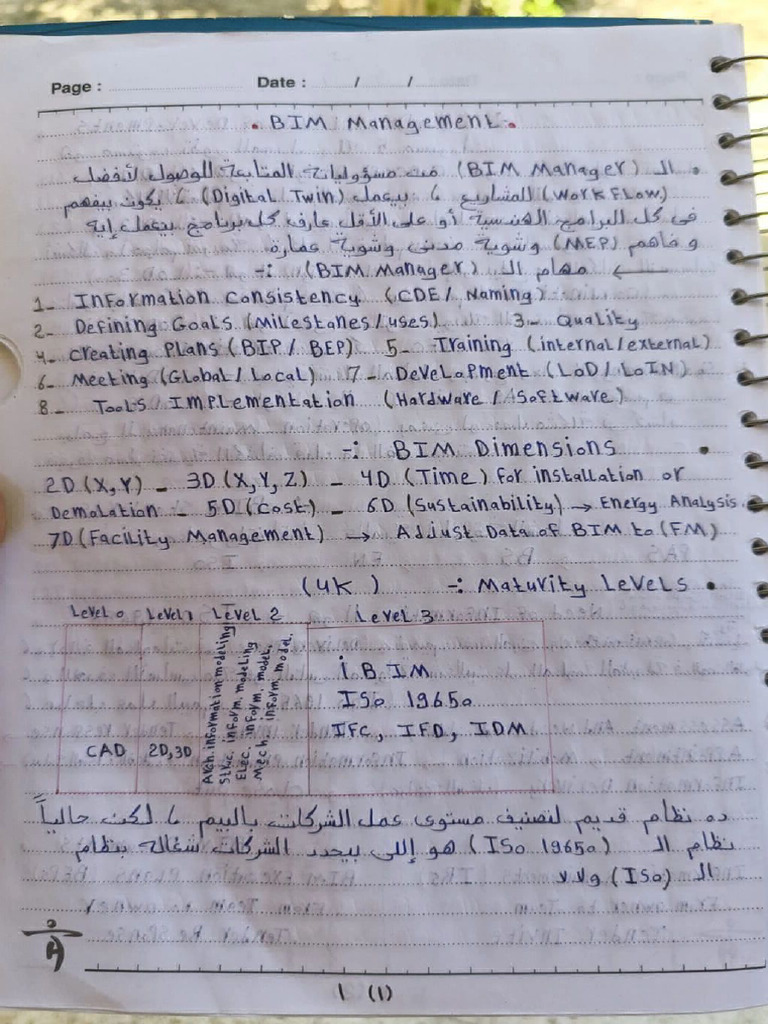 Page :
Date : / /
. BIM Management .
. الـ (BIM Manager) من مسؤوليات المتابعة للوصول لأفضل
(Work Flow) للمشاريع ، بيعمل (Digital Twin) ، يكون بيفهم
في كل البرامج الهندسية أو على الأقل عارف كل برنامج بيعمل إية
و فاهم (MEP) وشوية مدنى وشوية عمارة.
← مهام الـ (BIM Manager) :-
1- Information Consistency (CDE/ Naming)
2- Defining Goals (Milestanes/uses) 3- Quality
4- Creating Plans (BIP/ BEP) 5- Training (internal/external)
6- Meeting (Global/ Local) 7- Development (LoD/ LoIN)
8- Tools Implementation (Hardware / Software)
. BIM Dimensions :-
2D (X,Y) - 3D (X,Y,Z) - 4D (Time) for installation or
Demolation - 5D (Cost) - 6D (Sustainability) → Energy Analysis.
7D (Facility Management) → Adjust Data of BIM to (FM)
. Maturity Levels :- (UK)
Level 0 Level 1 Level 2 Level 3
CAD
2D,3D
Arch. information modeling
Struc. inform. modeling
Elec. inform. model.
Mech. inform. model.
i B I M
ISo 19650
IFC, IFD, IDM
ده نظام قديم لتصنيف مستوى عمل الشركات بالبيم ، لكن حالياً
نظام الـ (ISo 19650) هو إللى بيحدد الشركات شغاله بنظام
الـ (ISo) ولا لا
1 (1)